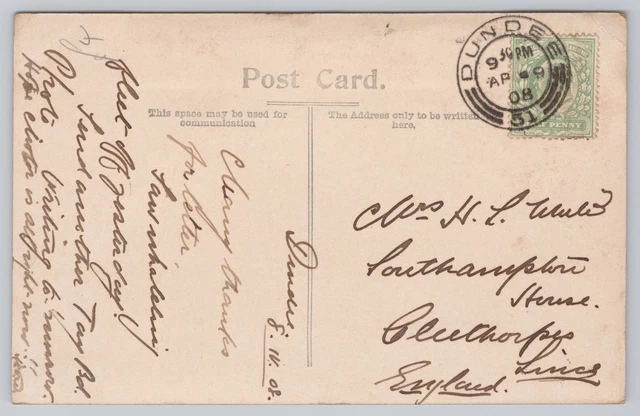 Post Card.
This space may be used for
communication
The Address only to be written
here.
DUNDEE
9 30PM
AP 9
08
51
PENNY
Dundee
8. IV. 08.
Many thanks
for letter.
Saw whaling
fleet off yesterday!
Send another Tay Bd.
Photo. Writing to'morrow.
Hope is alright now!!
Mrs H. L.
Southampton
House.
Cleethorpes
Lincs
England.